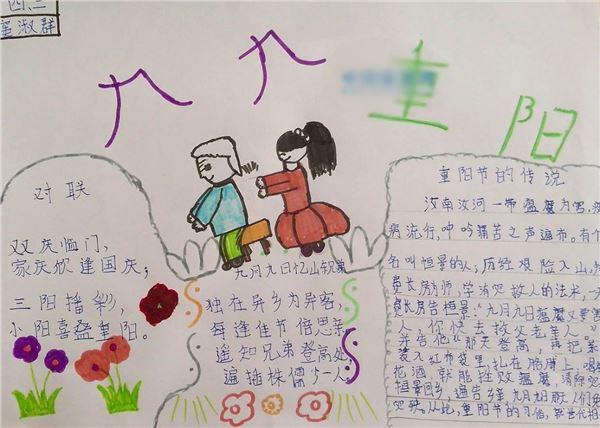 四、三
淑群
九九重阳
对联
双庆临门,
家庆欣逢国庆;
三阳播彩,
小阳喜叠重阳。
九月九日忆山东兄弟
独在异乡为异客,
每逢佳节倍思亲
遥知兄弟登高处
遍插株儒少一人
重阳节的传说
汝南汝河一带瘟魔为害,疫
病流行,呻吟痛苦之声遍布。有个
名叫恒景的人;历经艰险入山
费长房为师,学消灾救人的法术,一
费长房告桓景:九月九日瘟魔又要害
人,你快去救父老乡人。
并告他"那天登高,再把茱
装入红布袋里,扎在胳膊上,喝
花酒就能挫败瘟魔,消除灾
桓景回乡,遍告乡
从此,重阳节的习俗,